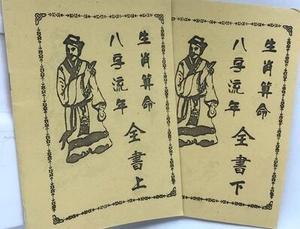 生肖算命
八字流年
全書上
生肖算命
八字流年
全書下